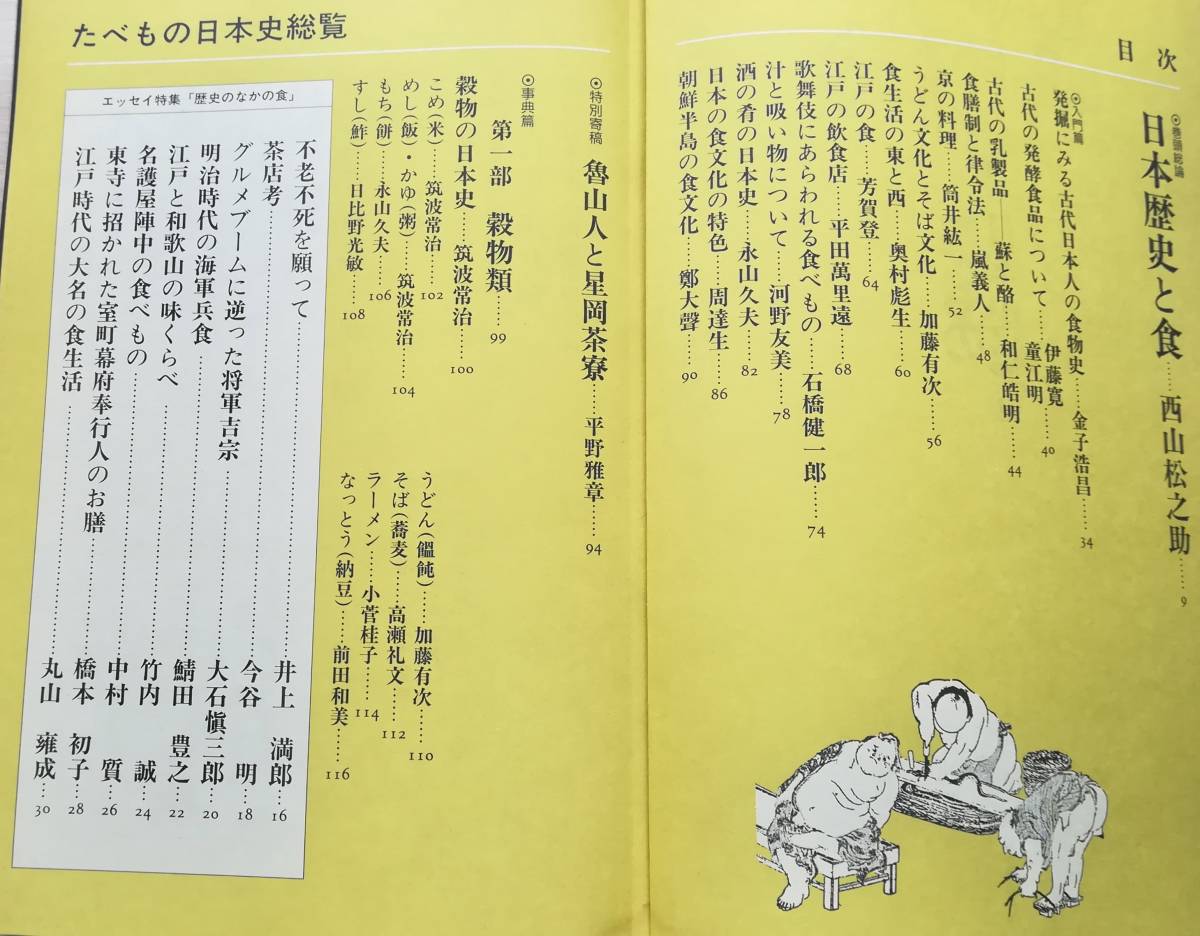 目次
◉巻頭総論
日本歴史と食……西山松之助……9
◉入門篇
発掘にみる古代日本人の食物史……金子浩昌……34
古代の発酵食品について……伊藤寛 童江明……40
古代の乳製品――蘇と酪……和仁皓明……44
食膳制と律令法……嵐義人……48
京の料理……筒井紘一……52
うどん文化とそば文化……加藤有次……56
食生活の東と西……奥村彪生……60
江戸の食……芳賀登……64
江戸の飲食店……平田萬里遠……68
歌舞伎にあらわれる食べもの……石橋健一郎……74
汁と吸い物について……河野友美……78
酒の肴の日本史……永山久夫……82
日本の食文化の特色……周達生……86
朝鮮半島の食文化……鄭大聲……90
たべもの日本史総覧
◉特別寄稿
魯山人と星岡茶寮……平野雅章……94
◉事典篇
第一部 穀物類……99
穀物の日本史……筑波常治……100
こめ(米)……筑波常治……102
めし(飯)・かゆ(粥)……筑波常治……104
もち(餅)……永山久夫……106
すし(鮓)……日比野光敏……108
うどん(饂飩)……加藤有次……110
そば(蕎麦)……高瀬礼文……112
ラーメン……小菅桂子……114
なっとう(納豆)……前田和美……116
エッセイ特集「歴史のなかの食」
不老不死を願って……井上 満郎…16
茶店考……今谷 明…18
グルメブームに逆った将軍吉宗……大石慎三郎…20
明治時代の海軍兵食……鯖田 豊之…22
江戸と和歌山の味くらべ……竹内 誠…24
名護屋陣中の食べもの……中村 質…26
東寺に招かれた室町幕府奉行人のお膳……橋本 初子…28
江戸時代の大名の食生活……丸山 雍成…30